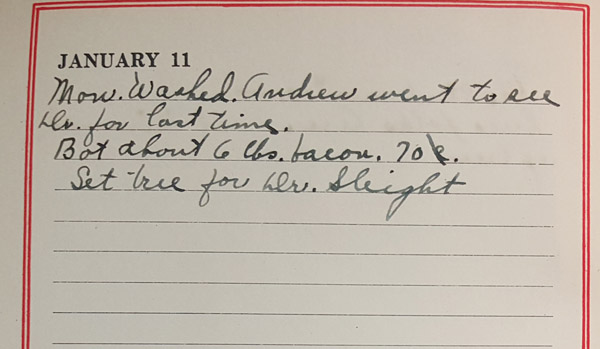 JANUARY 11
Mon. Washed. Andrew went to see
Dr. for last time.
Bot about 6 lbs. bacon. 70¢.
Set tree for Dr. Sleight